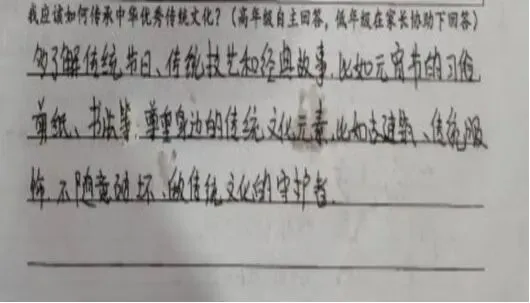 我应该如何传承中华优秀传统文化？（高年级自主回答，低年级在家长协助下回答）
多了解传统节日、传统技艺和经典故事.比如元宵节的习俗
剪纸、书法等.尊重身边的传统文化元素.比如古建筑、传统服
饰.不随意破坏、做传统文化的守护者.